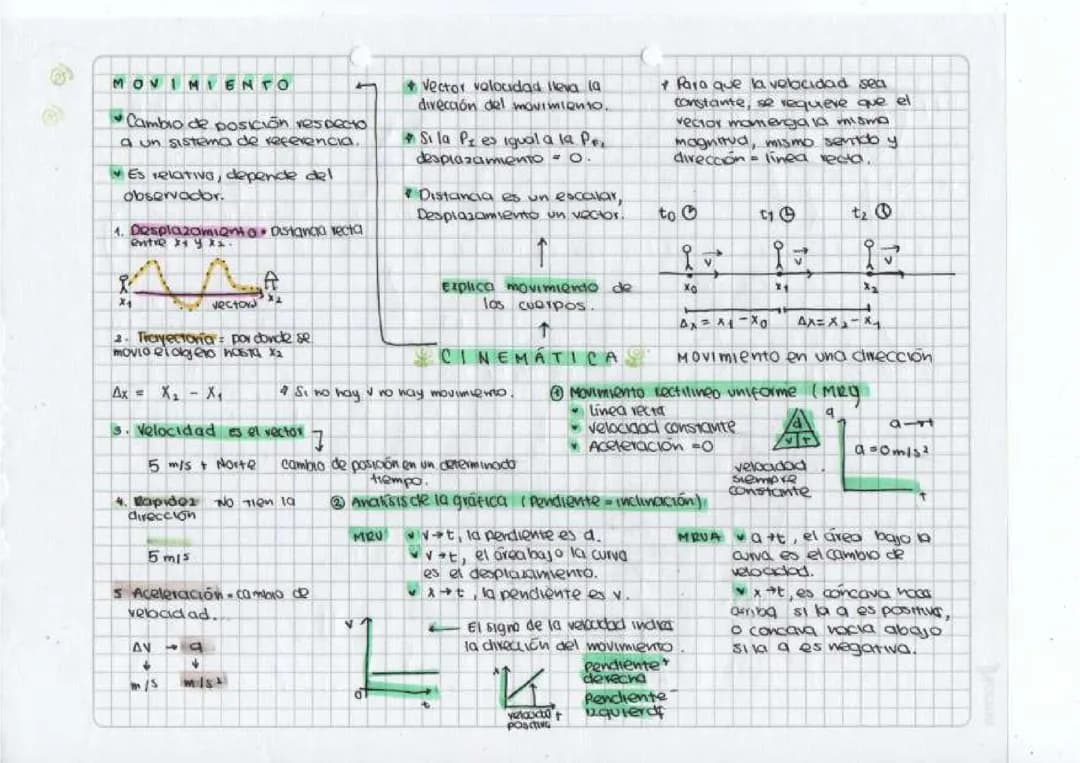 MOVIMIENTO
Cambio de posición respecto
a un sistema de referencia.
Es relativo, depende del
observador.
1. Desplazamiento = Distancia recta
entre x1 y x2.
x1 vector x2
2. Trayectoria = por donde se
movio el objeto hasta x2
Δx = X2 - X1
* Si no hay v no hay movimiento.
3. Velocidad es el vector
5 m/s + Norte
cambio de posición en un determinado
tiempo.
4. Rapidez No tien la
dirección
5 m/s
5 Aceleración = cambio de
velocidad...
Δv → a
m/s m/s²
* Vector velocidad lleva la
dirección del movimiento.
* Si la PI es igual a la PF,
desplazamiento = 0.
* Distancia es un escalar,
Desplazamiento un vector.
Explica movimiento de
los cuerpos.
CINEMÁTICA
* Para que la velocidad sea
constante, se requiere que el
vector mantenga la misma
magnitud, mismo sentido y
dirección = línea recta.
t0 t1 t2
v v v
x0 x1 x2
Δx = x1 - x0 Δx = x2 - x1
Movimiento en una dirección
① Movimiento rectilíneo uniforme (MRU)
Línea recta
velocidad constante
Aceleración = 0
d
v t
velocidad
siempre
constante
a
a→t
a = 0 m/s²
t
② Analisis de la gráfica (Pendiente = inclinación)
MRU
v→t, la pendiente es a.
v→t, el área bajo la curva
es el desplazamiento.
x→t, la pendiente es v.
v
0
t
El signo de la velocidad indica
la dirección del movimiento.
x
t
velocidad
positiva
pendiente +
derecha
Pendiente -
izquierda
MRUA
a→t, el área bajo la
curva es el cambio de
velocidad.
x→t, es cóncava hacia
arriba si la a es positiva,
o concava hacia abajo
si la a es negativa.